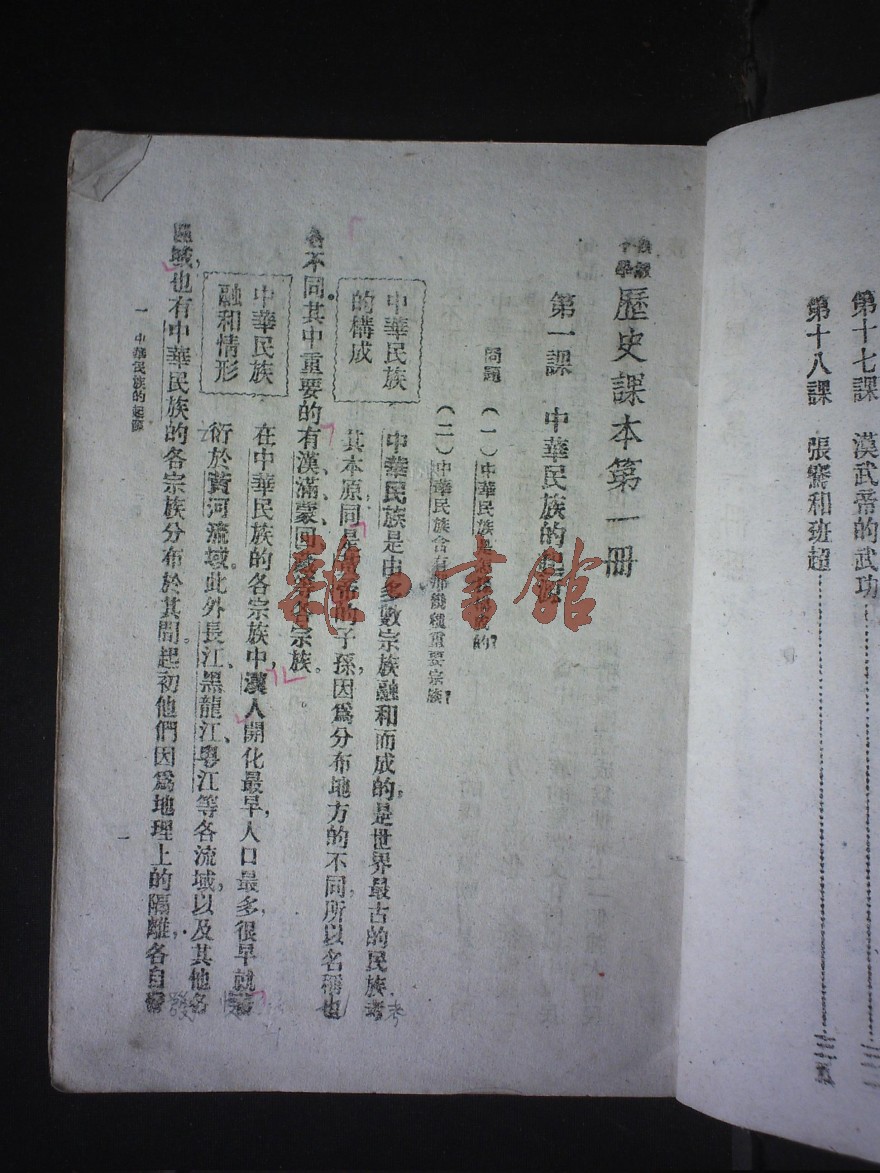 第十七課 漢武帝的武功
第十八課 張騫和班超
歷史課本第一冊
第一課 中華民族的
問題 (一)中華民族是 的?
(二)中華民族含有那幾種重要宗族?
中華民族
的構成
中華民族是由多數宗族融和而成的。是世界最古的民族考
其本原,同是黃帝的子孫,因爲分布地方的不同,所以名稱也
各不同。其中重要的有漢、滿、蒙、回、藏等各宗族。
中華民族
融和情形
在中華民族的各宗族中,漢人開化最早,人口最多,很早就
衍於黃河流域。此外長江、黑龍江、粵江等各流域,以及其他各
區域,也有中華民族的各宗族分布於其間。起初他們因爲地理上的隔離,各自發
一 中華民族的起源
一
雜·書館